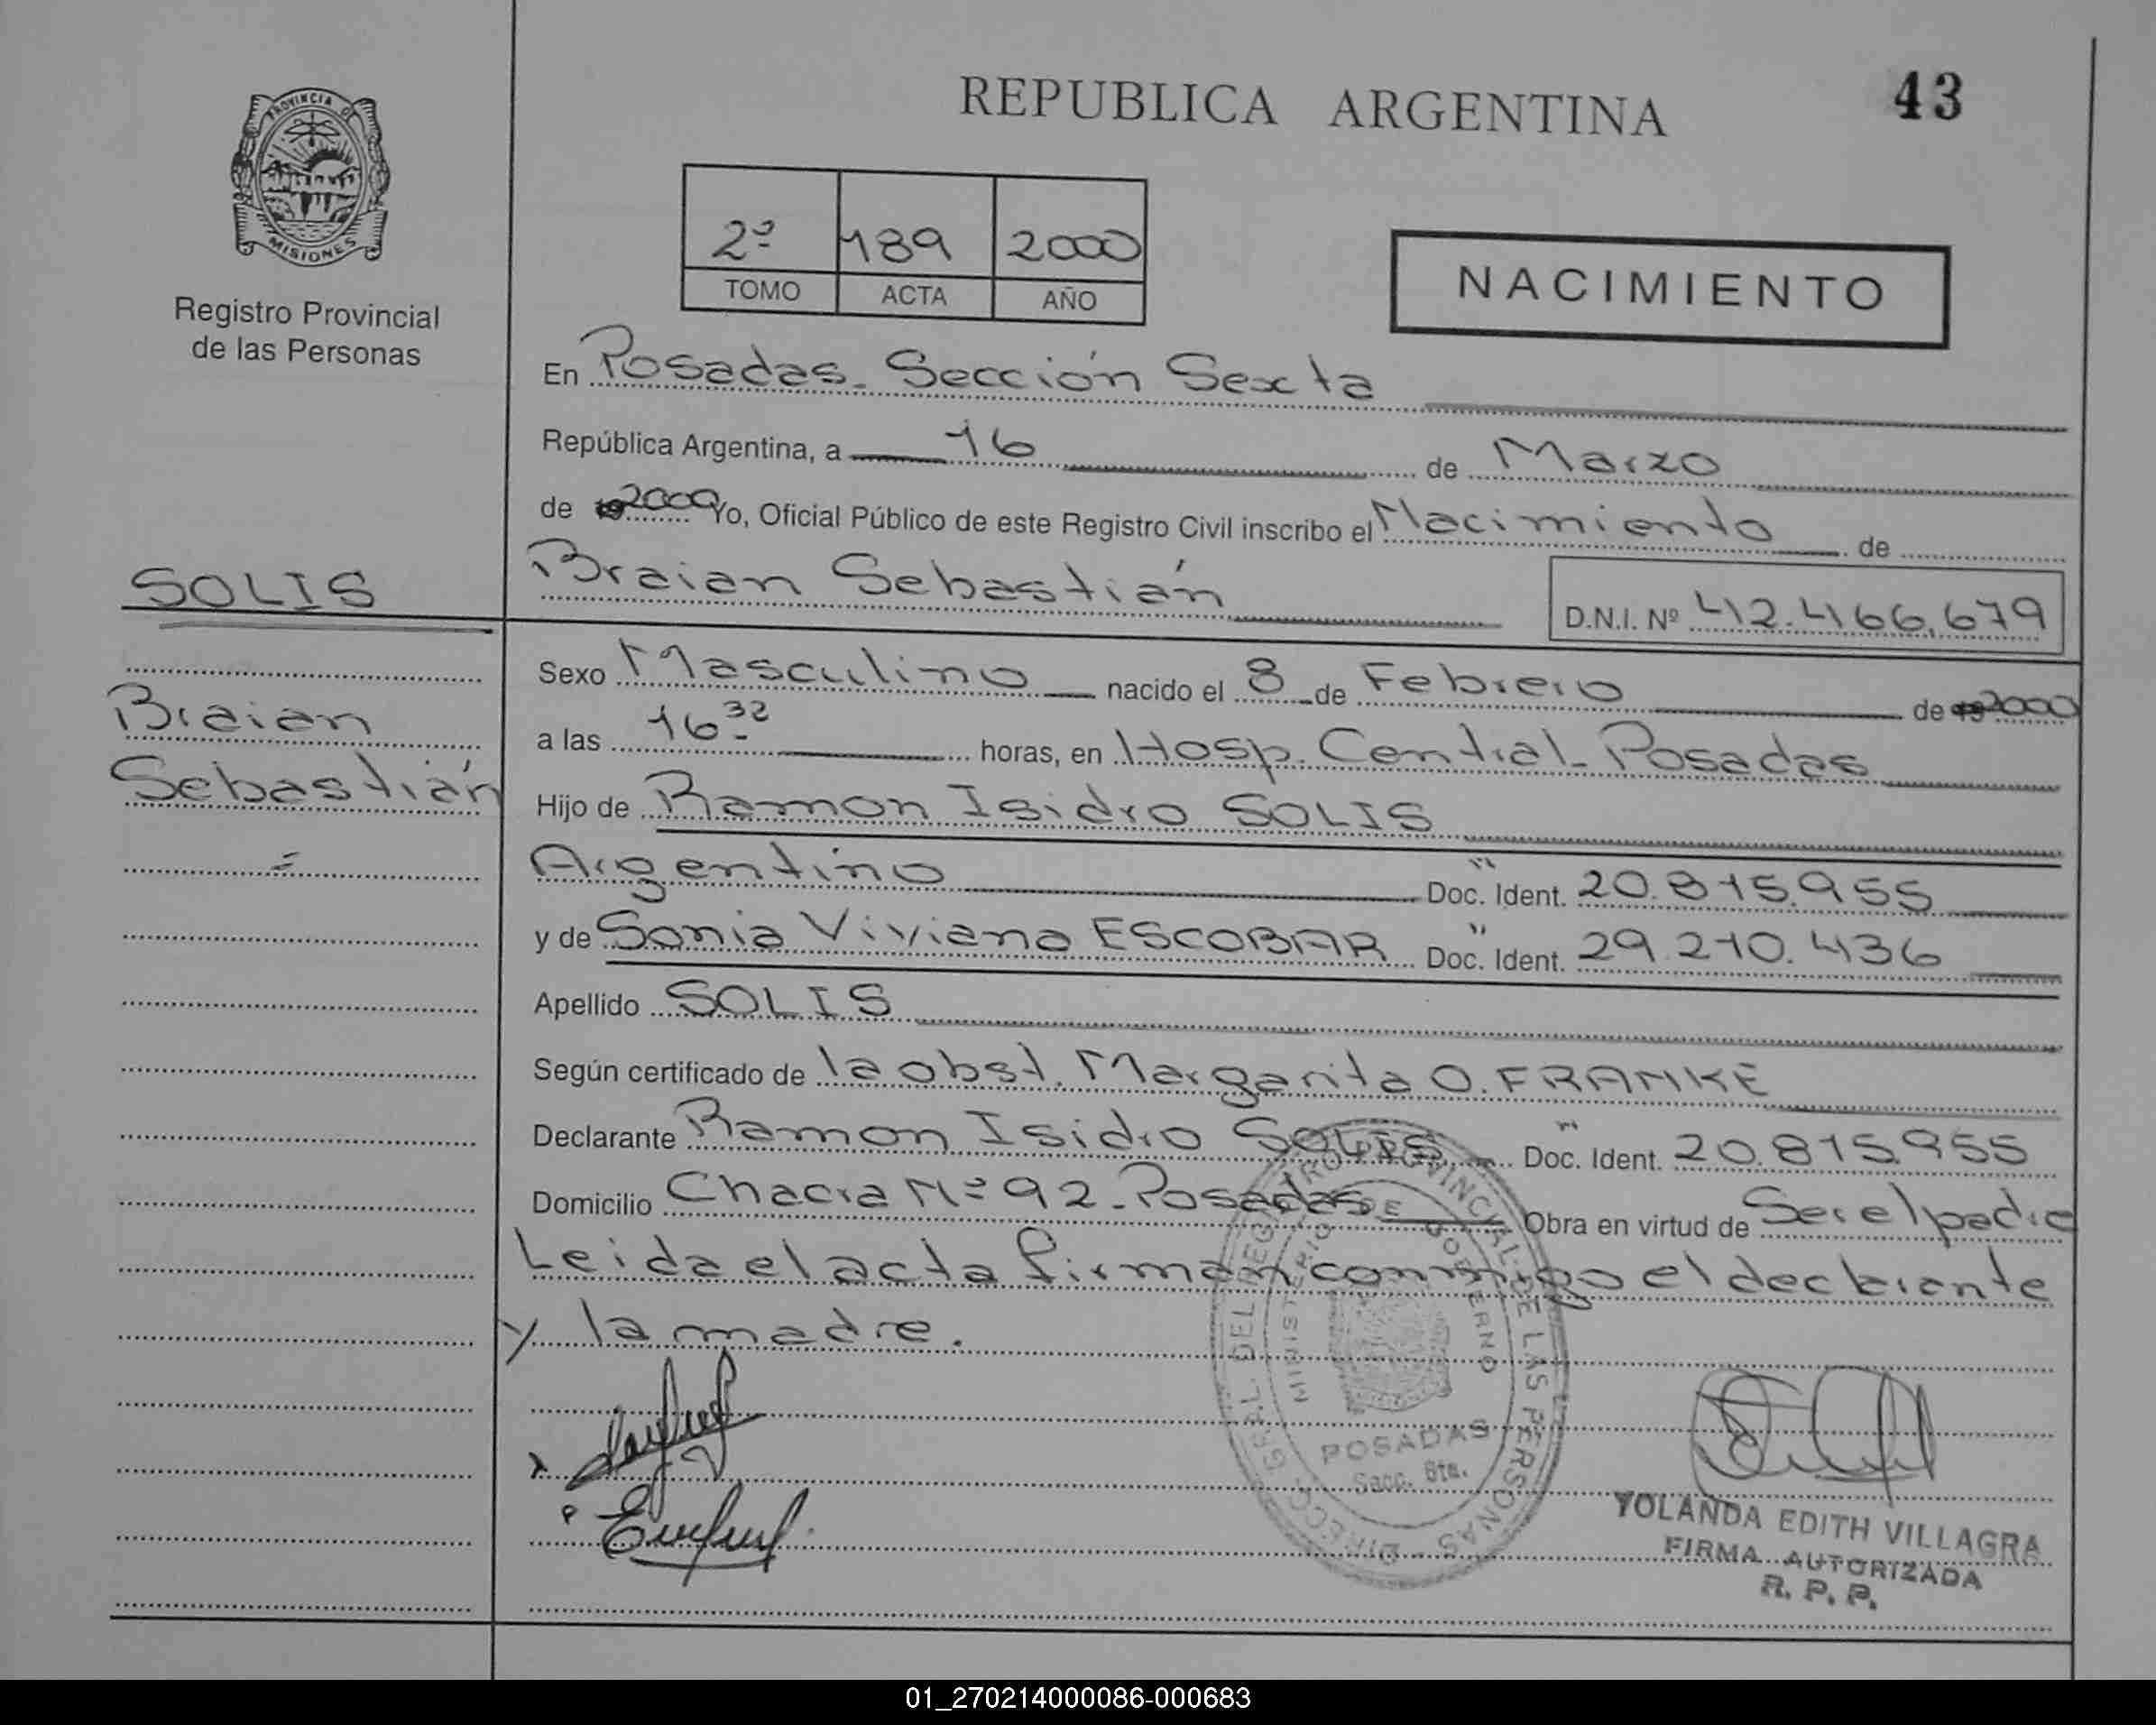 REPUBLICA ARGENTINA
43
PROVINCIA DE
MISIONES
Registro Provincial
de las Personas
2º 189 2000
TOMO ACTA AÑO
NACIMIENTO
En Posadas. Sección Sexta
República Argentina, a 16 de Marzo
de 2000 Yo, Oficial Público de este Registro Civil inscribo el Nacimiento de
SOLIS
Braian Sebastián D.N.I. Nº 42.466.679
Sexo Masculino nacido el 8 de Febrero de 2000
Braian
a las 16.32 horas, en Hosp. Central - Posadas
Sebastián
Hijo de Ramon Isidro SOLIS
Argentino Doc. Ident. 20.815.955
y de Sonia Viviana ESCOBAR Doc. Ident. 29.210.436
Apellido SOLIS
Según certificado de la obst. Margarita O. FRANKE
Declarante Ramon Isidro SOLIS Doc. Ident. 20.815.955
Domicilio Chacra Nº 92 - Posadas Obra en virtud de Ser el padre
Leida el acta firman conmigo el declarante
y la madre.
DIRECC. GRAL. DEL REGISTRO PROVINCIAL DE LAS PERSONAS
MINISTERIO DE GOBIERNO
POSADAS
Secc. 6ta.
YOLANDA EDITH VILLAGRA
FIRMA AUTORIZADA
R. P. P.
01_270214000086-000683